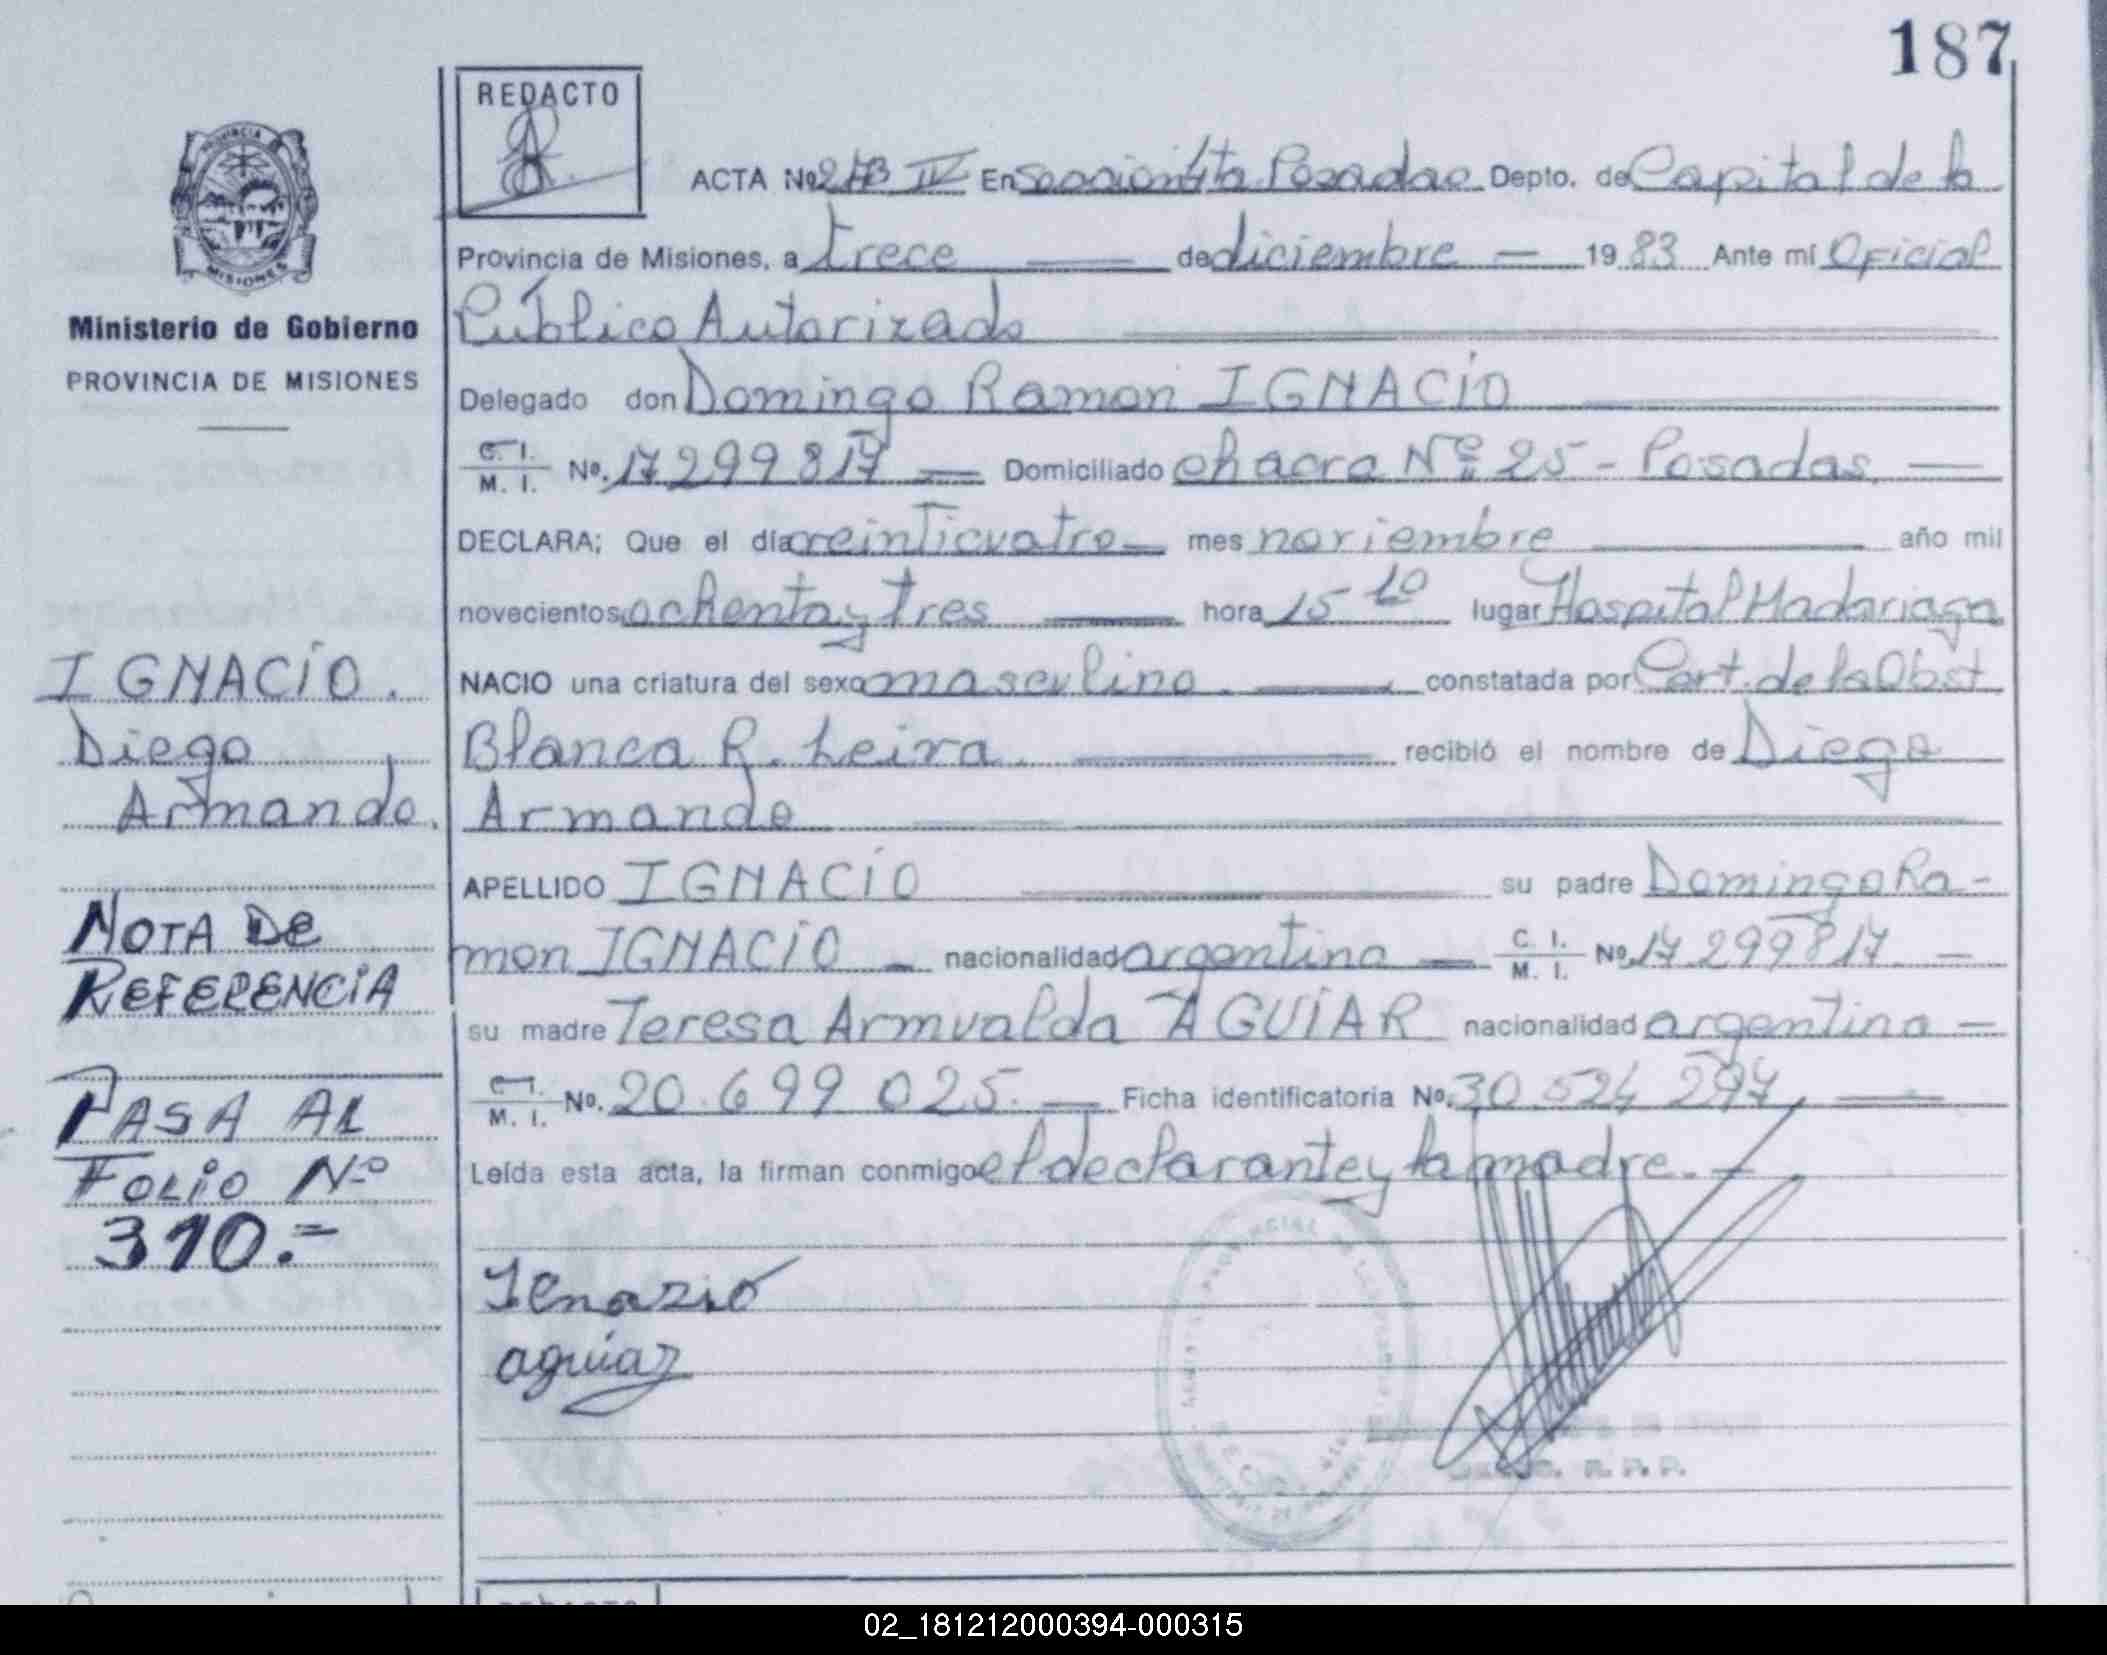 187
REDACTO
PROVINCIA DE
MISIONES
Ministerio de Gobierno
PROVINCIA DE MISIONES
ACTA No IV En Sección 4ta Posadas Depto. de Capital de la
Provincia de Misiones, a trece de diciembre 1983 Ante mí Oficial
Público Autorizado
Delegado don Domingo Ramon IGNACIO
C. I. / M. I. No. 17299817 Domiciliado chacra Nº 25 - Posadas.
DECLARA; Que el día veinticuatro mes noviembre año mil
novecientos ochenta y tres hora 15 10 lugar Hospital Madariaga
NACIO una criatura del sexo masculino. constatada por Cert. de la Obst
Blanca R. Leiva. recibió el nombre de Diego
Armando
APELLIDO IGNACIO su padre Domingo Ra-
mon IGNACIO nacionalidad argentina C. I. / M. I. No. 17.299817
su madre Teresa Armualda AGUIAR nacionalidad argentina
C. I. / M. I. No. 20.699 025. Ficha identificatoria No. 30.524 297
Leída esta acta, la firman conmigo el declarante y la madre.
Ignazio
aguiar
IGNACIO.
Diego
Armando.
NOTA DE
REFERENCIA
PASA AL
FOLIO Nº
310.-
02_181212000394-000315